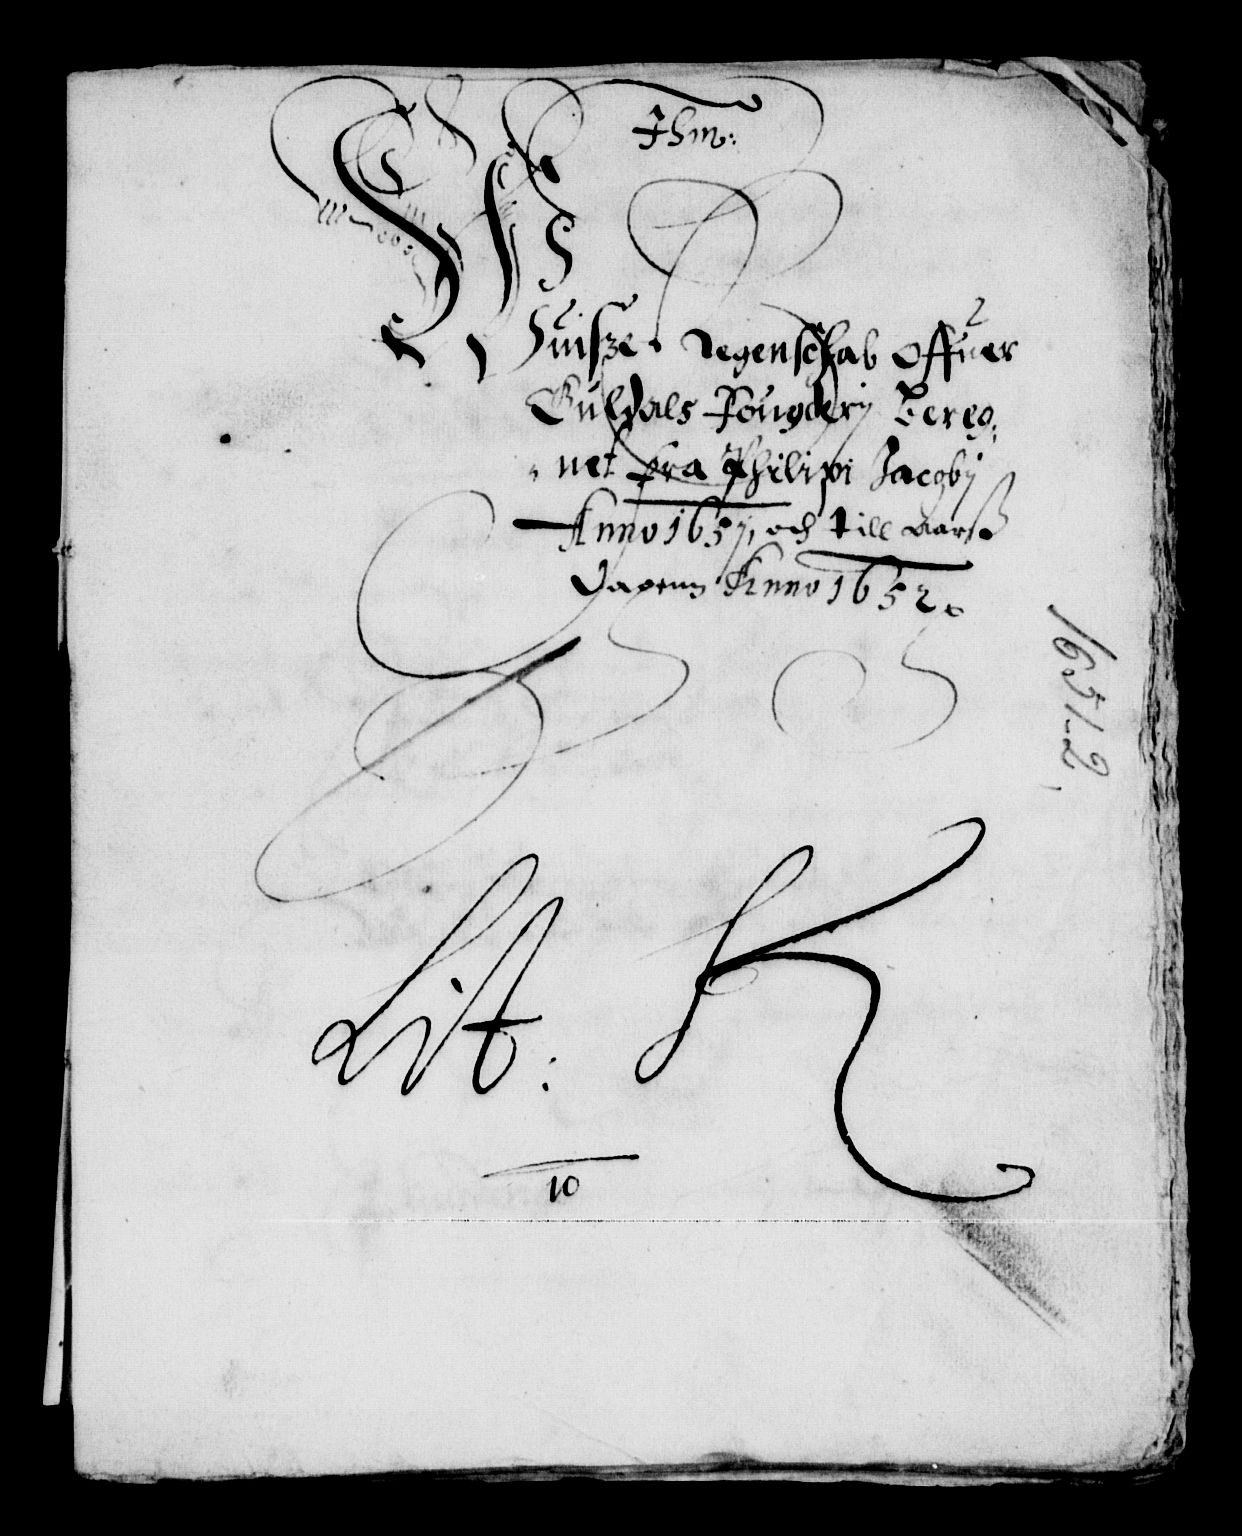 Thm:
Huisze Regenschab Offuer
Guldals Fougderij Bereg:
net fra Philipi Jacobj
Anno 1651, och till Aarß
dagenn Anno 1652
1651-2
Lit: K
10